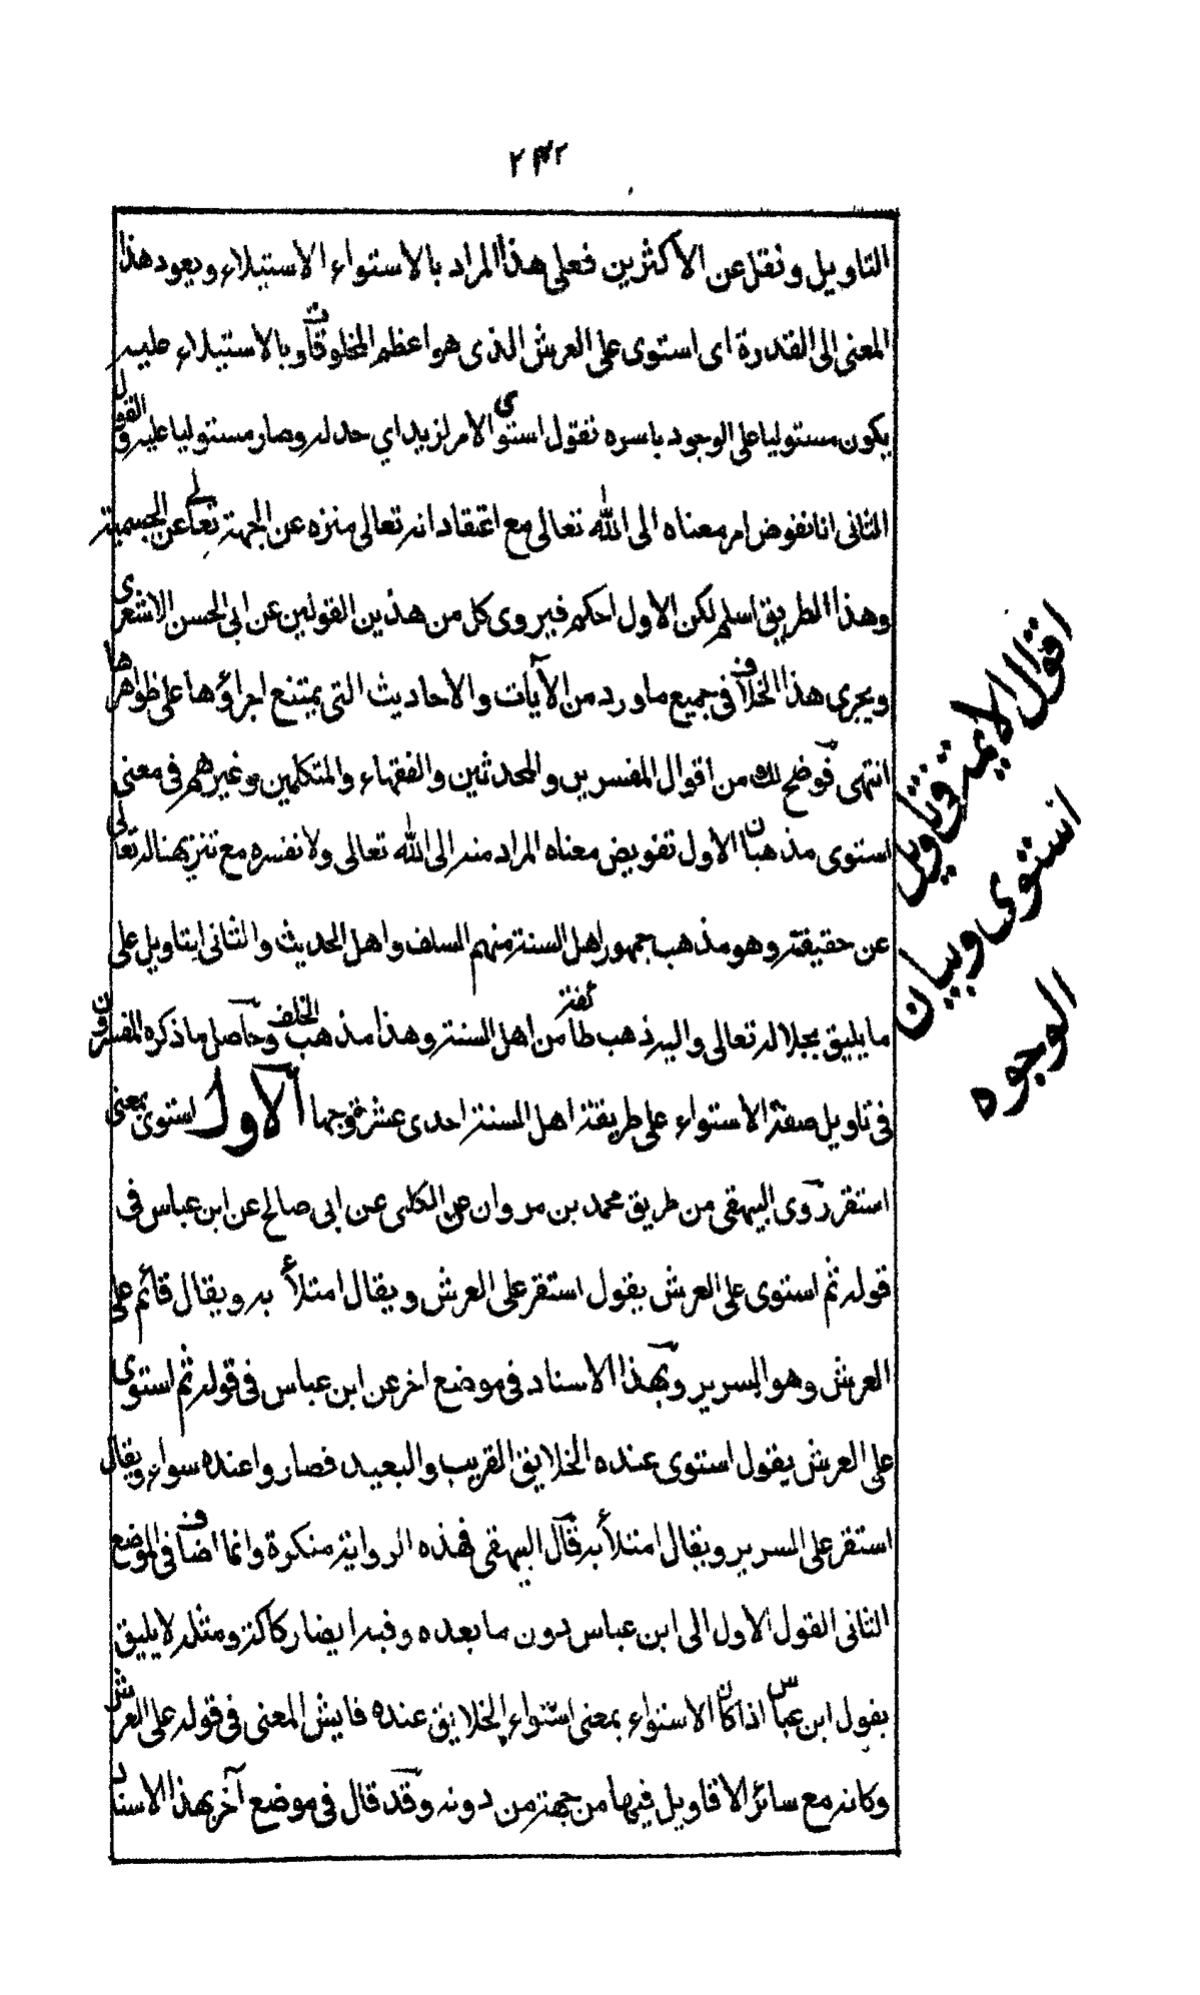 ٢٤٢
التاويل ونقل عن الأكثرين فعلى هذا المراد بالاستواء الاستيلاء ويعود هذا
المعنى الى القدرة اى استوى على العرش الذى هو اعظم المخلوقات وبالاستيلاء عليه
يكون مستوليا على الوجود باسره تقول استوى الامر لزيد اي حد له وصار مستوليا عليه والقول
الثانى انا نفوض امر معناه الى الله تعالى مع اعتقاد انه تعالى منزه عن الجهة تعالى عن الجسمية
وهذا الطريق اسلم لكن الاول احكم فيروى كل من هذين القولين عن ابى الحسن الاشعرى
ويجرى هذا الخلاف فى جميع ما ورد من الآيات والاحاديث التى يمتنع اجراؤها على ظواهرها
انتهى فوضح لك من اقوال المفسرين والمحدثين والفقهاء والمتكلمين وغيرهم فى معنى
استوى مذهبان الاول تفويض معناه المراد منه الى الله تعالى ولا نفسره مع تنزيهنا له تعالى
عن حقيقته وهو مذهب جمهور اهل السنة منهم السلف واهل الحديث والثانى ابتاويل على
ما يليق بجلاله تعالى واليه ذهب طائفة من اهل السنة وهذا مذهب الخلف وحاصل ما ذكره المفسرون
فى تاويل صفة الاستواء على طريقة اهل السنة احدى عشرة وجها الأول استوى بمعنى
استقر روى البيهقى من طريق محمد بن مروان عن الكلبى عن ابى صالح عن ابن عباس فى
قوله ثم استوى على العرش يقول استقر على العرش ويقال امتلأ به ويقال قائم على
العرش وهو السرير وبهذا الاسناد فى موضع اخر عن ابن عباس فى قوله ثم استوى
على العرش يقول استوى عنده الخلايق القريب والبعيد فصاروا عنده سواء ويقال
استقر على السرير ويقال امتلأ به قال البيهقى فهذه الرواية منكرة وانما اضاف فى الموضع
الثانى القول الاول الى ابن عباس دون ما بعده وفيه ايضا ركاكة ومثله لا يليق
بقول ابن عباس اذا كان الاستواء بمعنى استواء الخلايق عنده فايش المعنى فى قوله على العرش
وكانه مع سائر الاقاويل فيها من جهة من دونه وقد قال فى موضع آخر بهذا الاسناد
اقوال الايمة فى تاويل
استوى وبيان
الوجوه